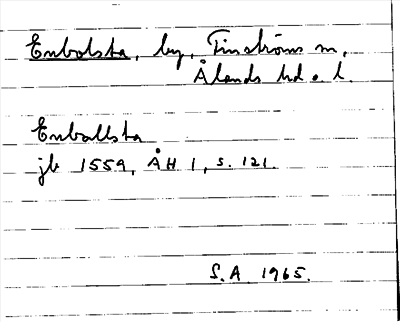 Enbolsta, by, Finströms sn,
Ålands hd o. l.
Enballsta
jb 1559, ÅH 1, s. 121.
S.A. 1965.